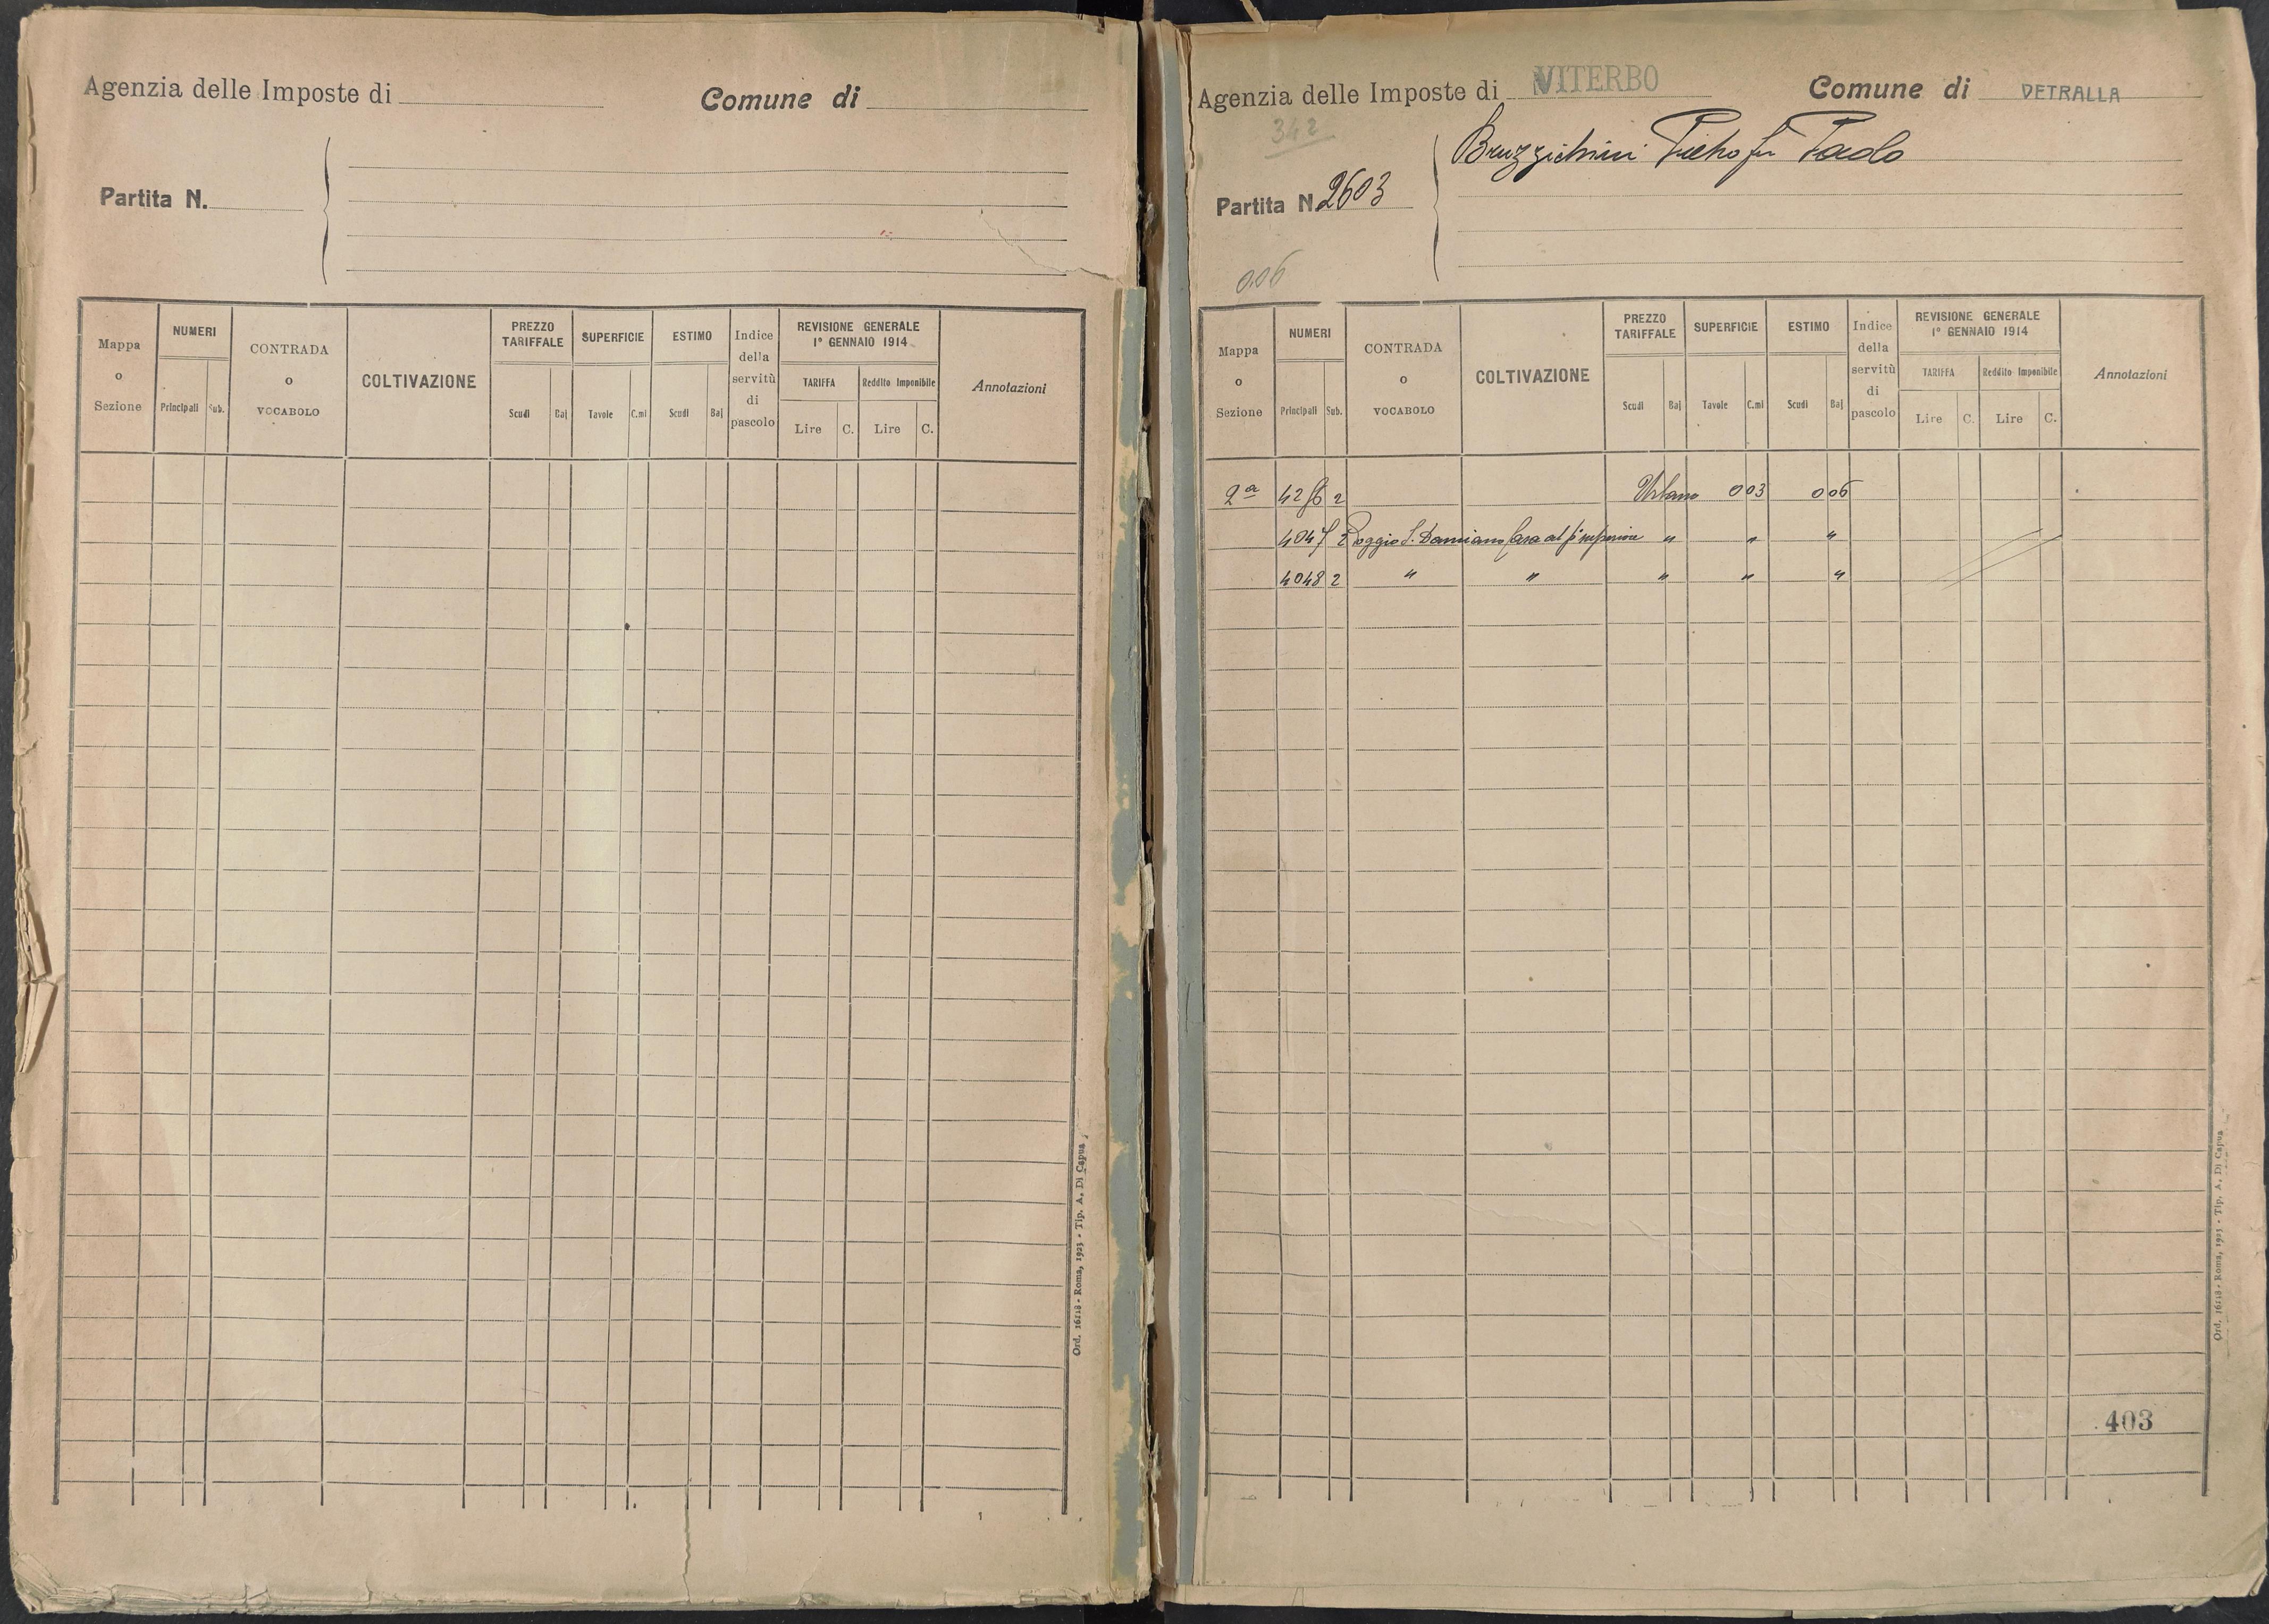 Agenzia delle Imposte di
Comune di
Partita N.
Mappa o Sezione
NUMERI
Principali
Sub.
CONTRADA o VOCABOLO
COLTIVAZIONE
PREZZO TARIFFALE
Scudi
Baj
SUPERFICIE
Tavole
C.mi
ESTIMO
Scudi
Baj
Indice della servitù di pascolo
REVISIONE GENERALE
1° GENNAIO 1914
TARIFFA
Reddito Imponibile
Lire C. Lire C.
Annotazioni
Ord. 16118 - Roma, 1923 - Tip. A. Di Capua
Agenzia delle Imposte di VITERBO
Comune di VETRALLA
342
Bruzzichini Pietro fu Paolo
Partita N. 2603
0.06
Mappa o Sezione
NUMERI
Principali
Sub.
CONTRADA o VOCABOLO
COLTIVAZIONE
PREZZO TARIFFALE
Scudi
Baj
SUPERFICIE
Tavole
C.mi
ESTIMO
Scudi
Baj
Indice della servitù di pascolo
REVISIONE GENERALE
1° GENNAIO 1914
TARIFFA
Reddito Imponibile
Lire C. Lire C.
Annotazioni
2ª 2 Urbano 0 03 0 06
4047 2 Poggio S. Damiano Casa al p° superiore " " "
4048 2 " " " " "
403
Ord. 16118 - Roma, 1923 - Tip. A. Di Capua